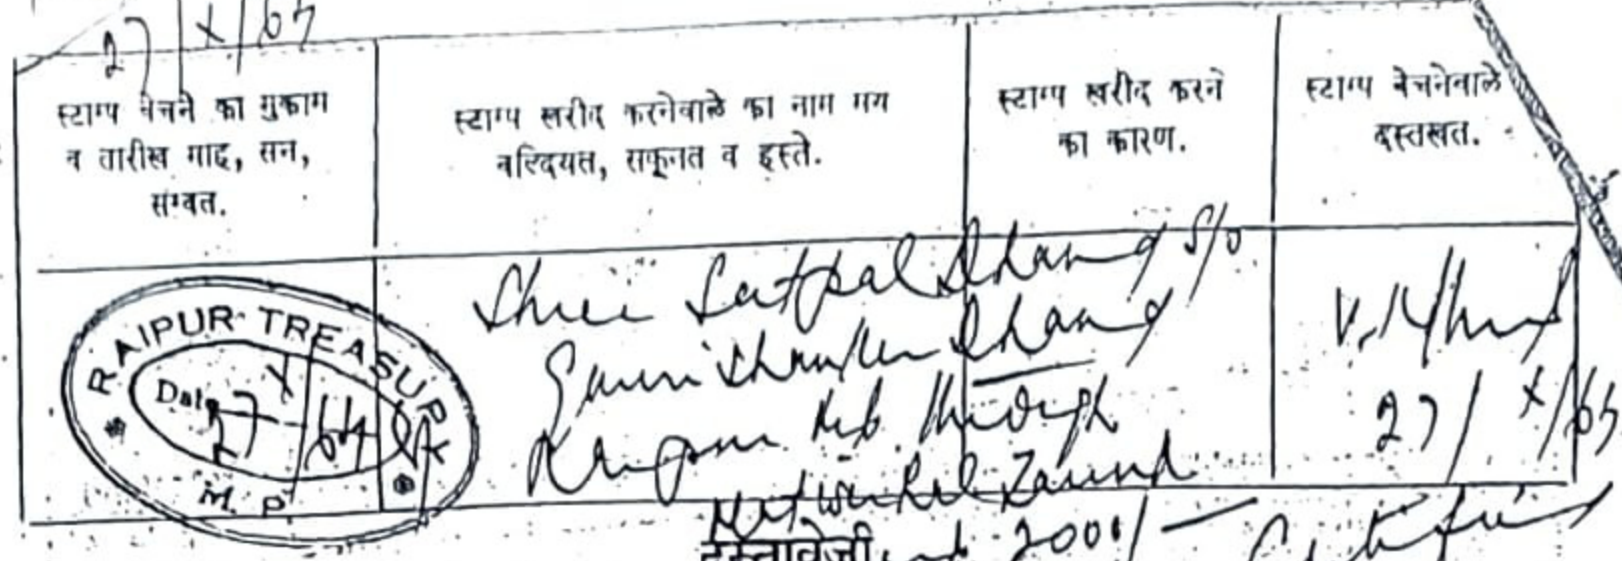 27/X/64
स्टाम्प बेचने का मुकाम
व तारीख माह, सन,
संम्वत.
स्टाम्प खरीद करनेवाले का नाम मय
वल्दियत, सकूनत व हस्ते.
स्टाम्प खरीद करने
का कारण.
स्टाम्प बेचनेवाले
दस्तखत.
RAIPUR TREASURY
Date 27/X/64
M. P.
Shree Satpal Dhand S/o
Gauri Shanker Dhand
Raipur through
27/X/64
दस्तावेजी 2000/-